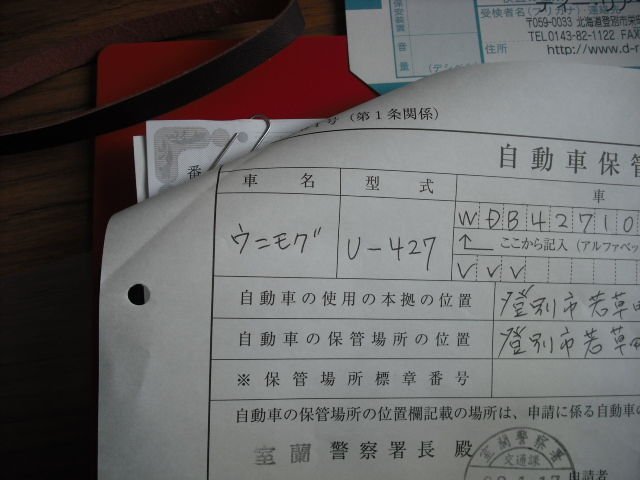 受検者名(
〒059-0033 北海道登別市栄
TEL0143-82-1122 FAX
住所 http://www.d-r
保安装置
音量
(第1条関係)
番
自動車保管
車名 型式 車
ウニモグ U-427 WDB42710
ここから記入(アルファベッ
自動車の使用の本拠の位置 登別市若草町
自動車の保管場所の位置 登別市若草町
※保管場所標章番号
自動車の保管場所の位置欄記載の場所は、申請に係る自動車の
室蘭 警察署長 殿
室蘭警察署
交通課
申請者